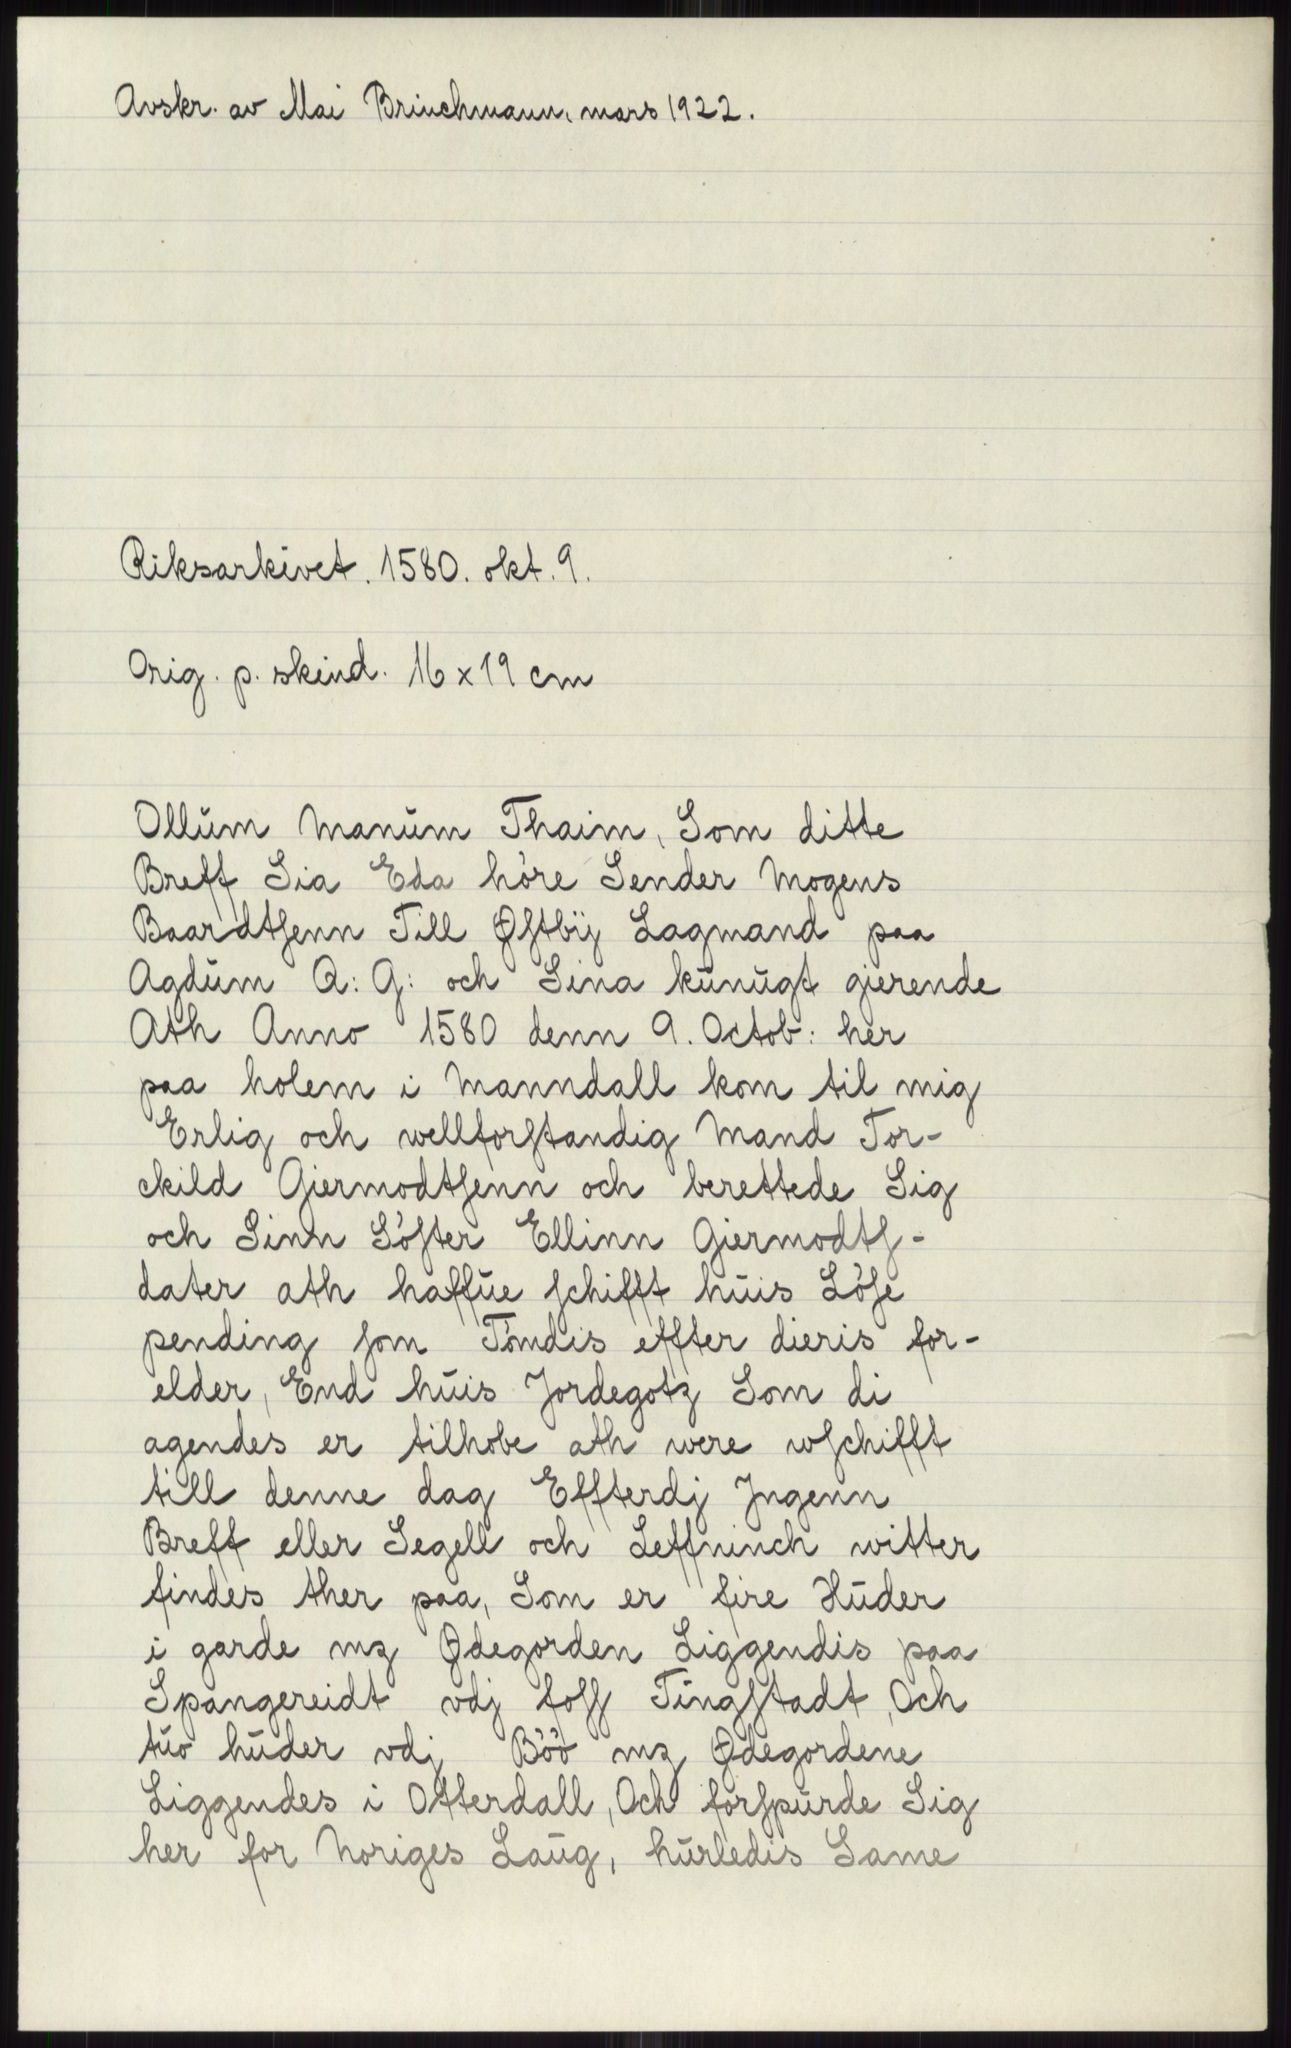 Avskr. av Mai Brinchmann, mars 1922.
Riksarkivet. 1580. okt. 9.
Orig. p. skind. 16 x 19 cm
Ollŭm Manŭm Thaim, Som ditte
Breff Sia Eda höre Sender Mogens
Baardtſenn Till Øſtbÿ Lagmand paa
Agdŭm Q: G: och Sina kŭnŭgt gierende
Ath Anno 1580 denn 9. Octob: her
paa holem i Manndall kom til mig
Erlig och wellforſtandig Mand Tor-
ckild Giermodtſenn och berettede Sig
och Sinn Söſter Ellinn Giermodtſ-
dater ath haffŭe ſchifft hŭis Löſe
pending ſom Tömdis effter dieris for-
elder, End hŭis Jordegotz Som di
agendes er tilhobe ath were wſchifft
till denne dag Effterdj Jngenn
Breff eller Segell och Leffninch witter
findes ther paa, Som er fire Hŭder
i garde mz Ødegorden Liggendis paa
Spangereidt vdj foſſ Tingſtadt, Och
tŭo hŭder vdj Böö mz Ødegordene
Liggendes i Otterdall, Och forſpŭrde Sig
her for Noriges Laŭg, hŭrledis Same